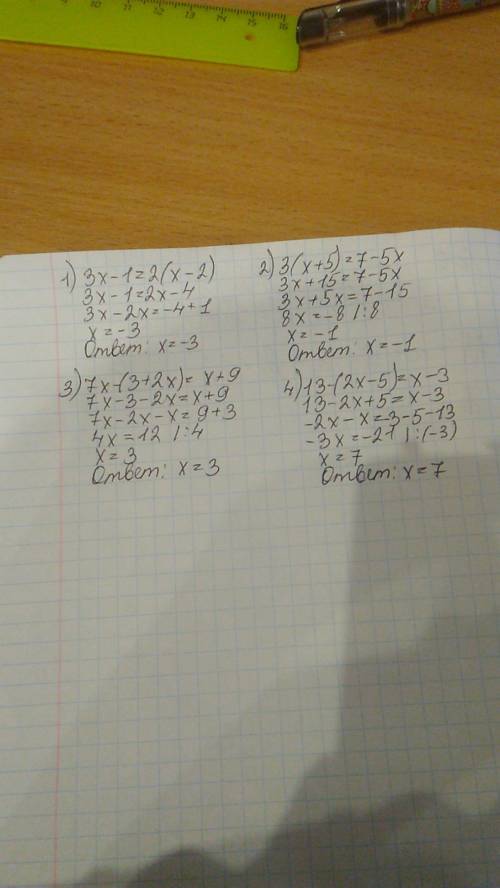 9 10 11 12 13 14 15 16
1) 3x-1=2(x-2)
3x-1=2x-4
3x-2x=-4+1
x=-3
Ответ: x=-3
2) 3(x+5)=7-5x
3x+15=7-5x
3x+5x=7-15
8x=-8 |:8
x=-1
Ответ: x=-1
3) 7x-(3+2x)=x+9
7x-3-2x=x+9
7x-2x-x=9+3
4x=12 |:4
x=3
Ответ: x=3
4) 13-(2x-5)=x-3
13-2x+5=x-3
-2x-x=3-5-13
-3x=-21 |:(-3)
x=7
Ответ: x=7